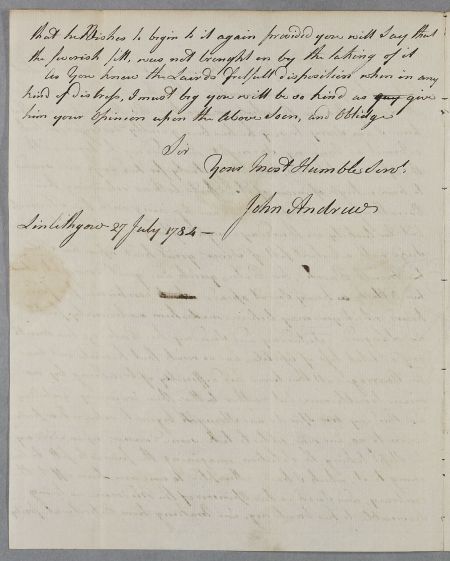 that he Wishes to begin to it again provided you will say that
the feverish fitt, was not brought on by the taking of it
As You know the Lairds fretfull disposition when in any
kind of distress, I must beg you will be so kind as give
him your Opinion upon the Above Soon, and Oblidge
Sir
Your Most Humble Servt.
John Andrew
Linlithgow 27 July 1784 —